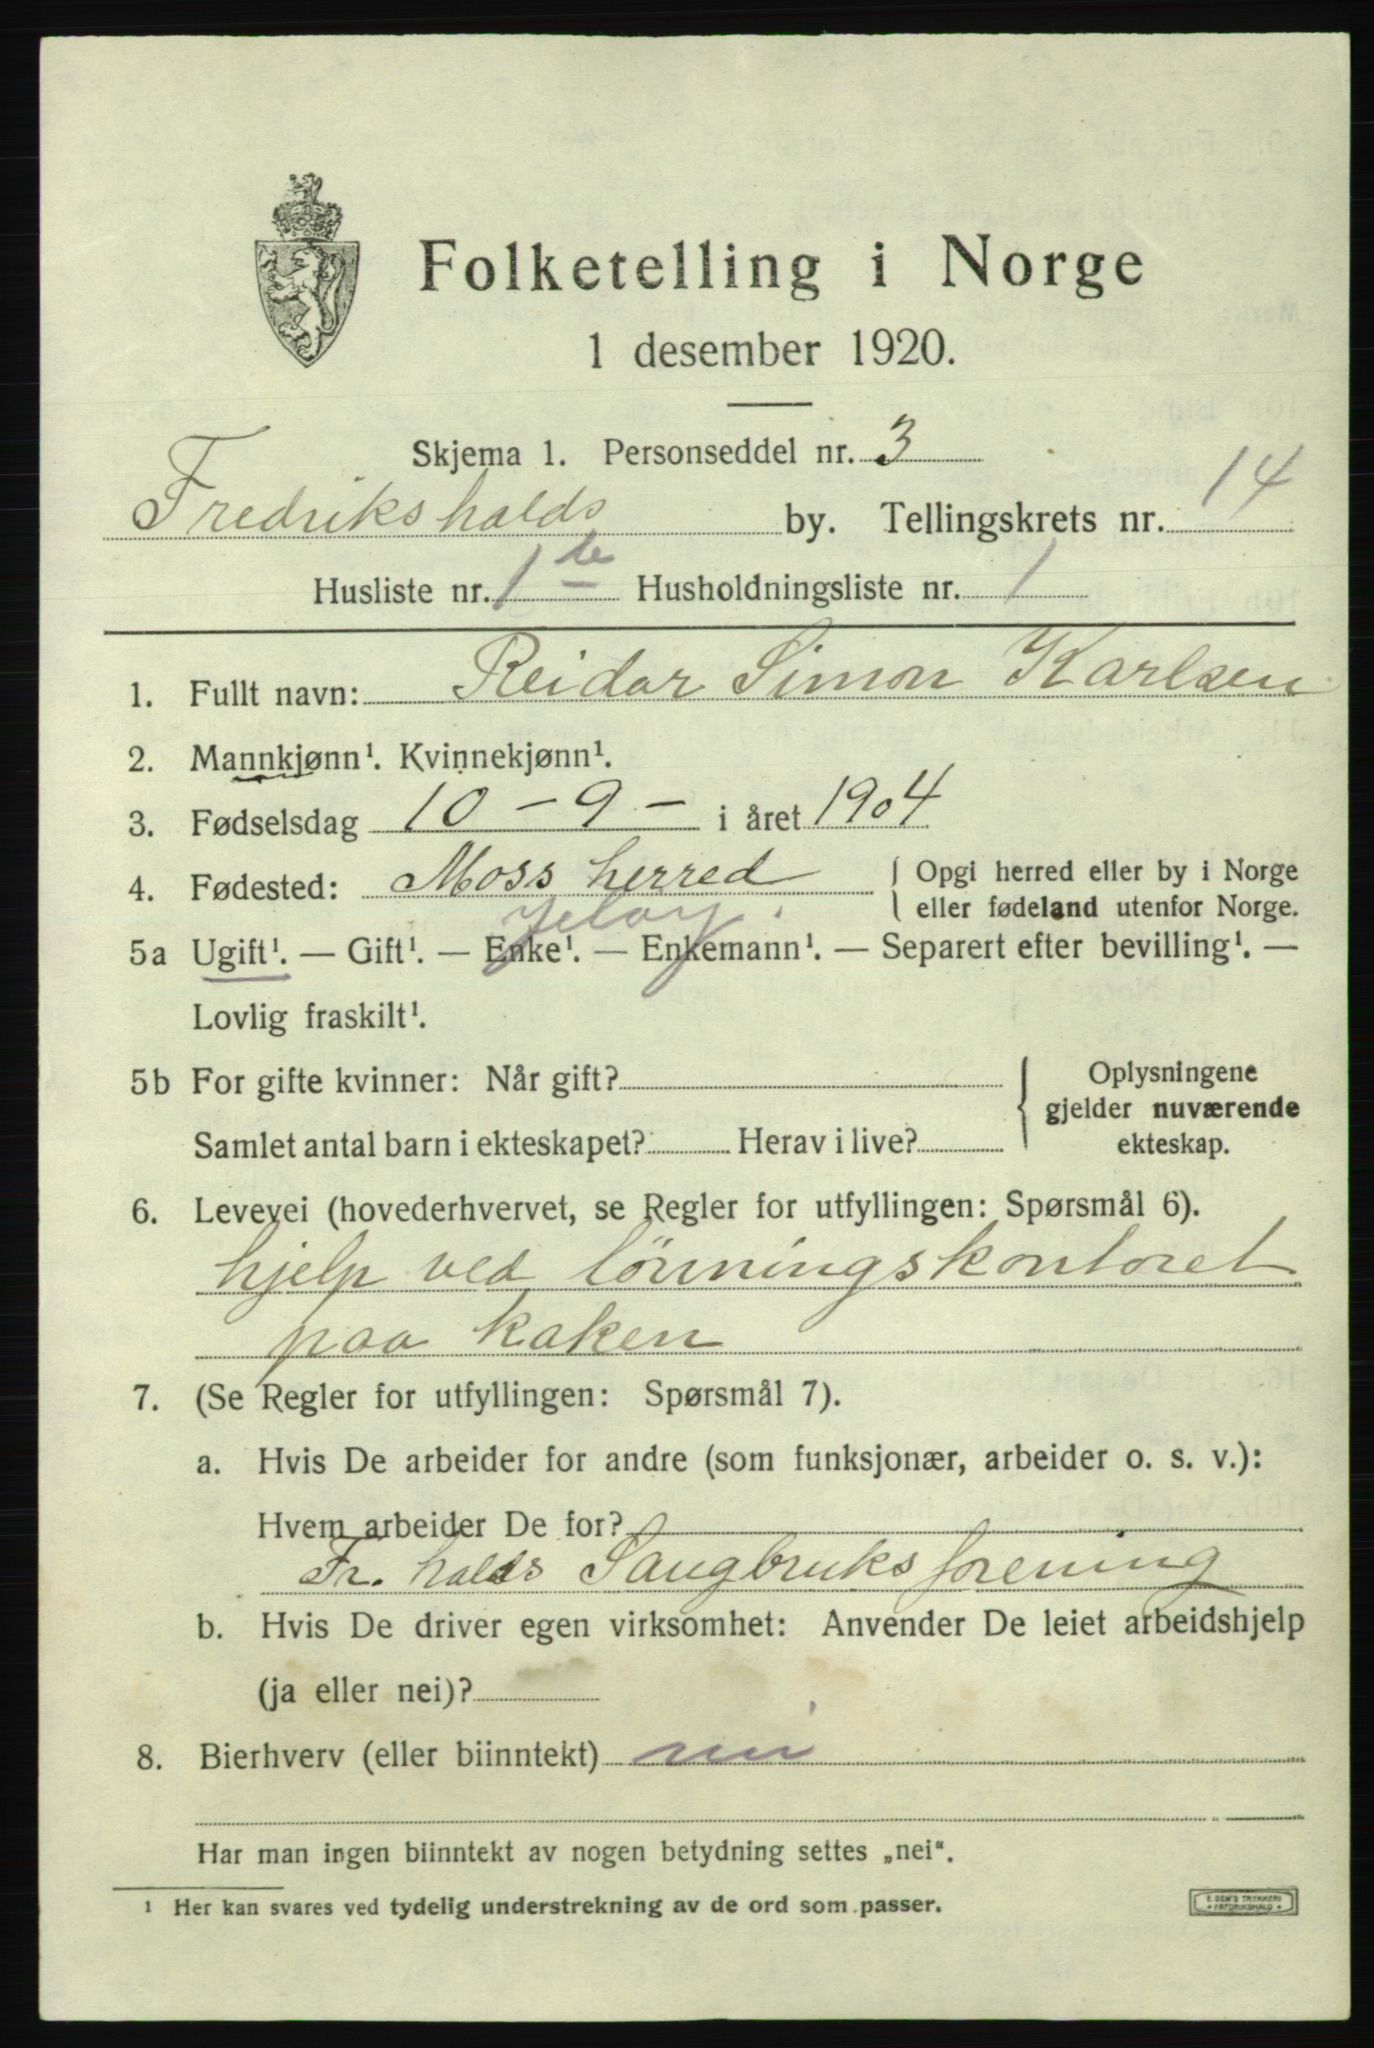 Folketelling i Norge
1 desember 1920.
Skjema 1. Personseddel nr. 3
Fredrikshalds by. Tellingskrets nr. 14
Husliste nr. 1 te Husholdningsliste nr. 1
1. Fullt navn: Reidar Simon Karlsen
2. Mannkjønn¹. Kvinnekjønn¹.
3. Fødselsdag 10 - 9 - i året 1904
4. Fødested: Moss herred { Opgi herred eller by i Norge
eller fødeland utenfor Norge.
Jeløy.
5a Ugift¹. — Gift¹. — Enke¹. — Enkemann¹. — Separert efter bevilling¹. —
Lovlig fraskilt¹.
5b For gifte kvinner: Når gift? { Oplysningene
gjelder nuværende
Samlet antal barn i ekteskapet? Herav i live? ekteskap.
6. Levevei (hovederhvervet, se Regler for utfyllingen: Spørsmål 6).
hjelp ved lönningskontoret
paa kaken
7. (Se Regler for utfyllingen: Spørsmål 7).
a. Hvis De arbeider for andre (som funksjonær, arbeider o. s. v.):
Hvem arbeider De for?
Fr. halds Saugbruksforening
b. Hvis De driver egen virksomhet: Anvender De leiet arbeidshjelp
(ja eller nei)?
8. Bierhverv (eller biinntekt) nei
Har man ingen biinntekt av nogen betydning settes „nei“.
¹ Her kan svares ved tydelig understrekning av de ord som passer.
E. SEM'S TRYKKERI
* FREDRIKSHALD *